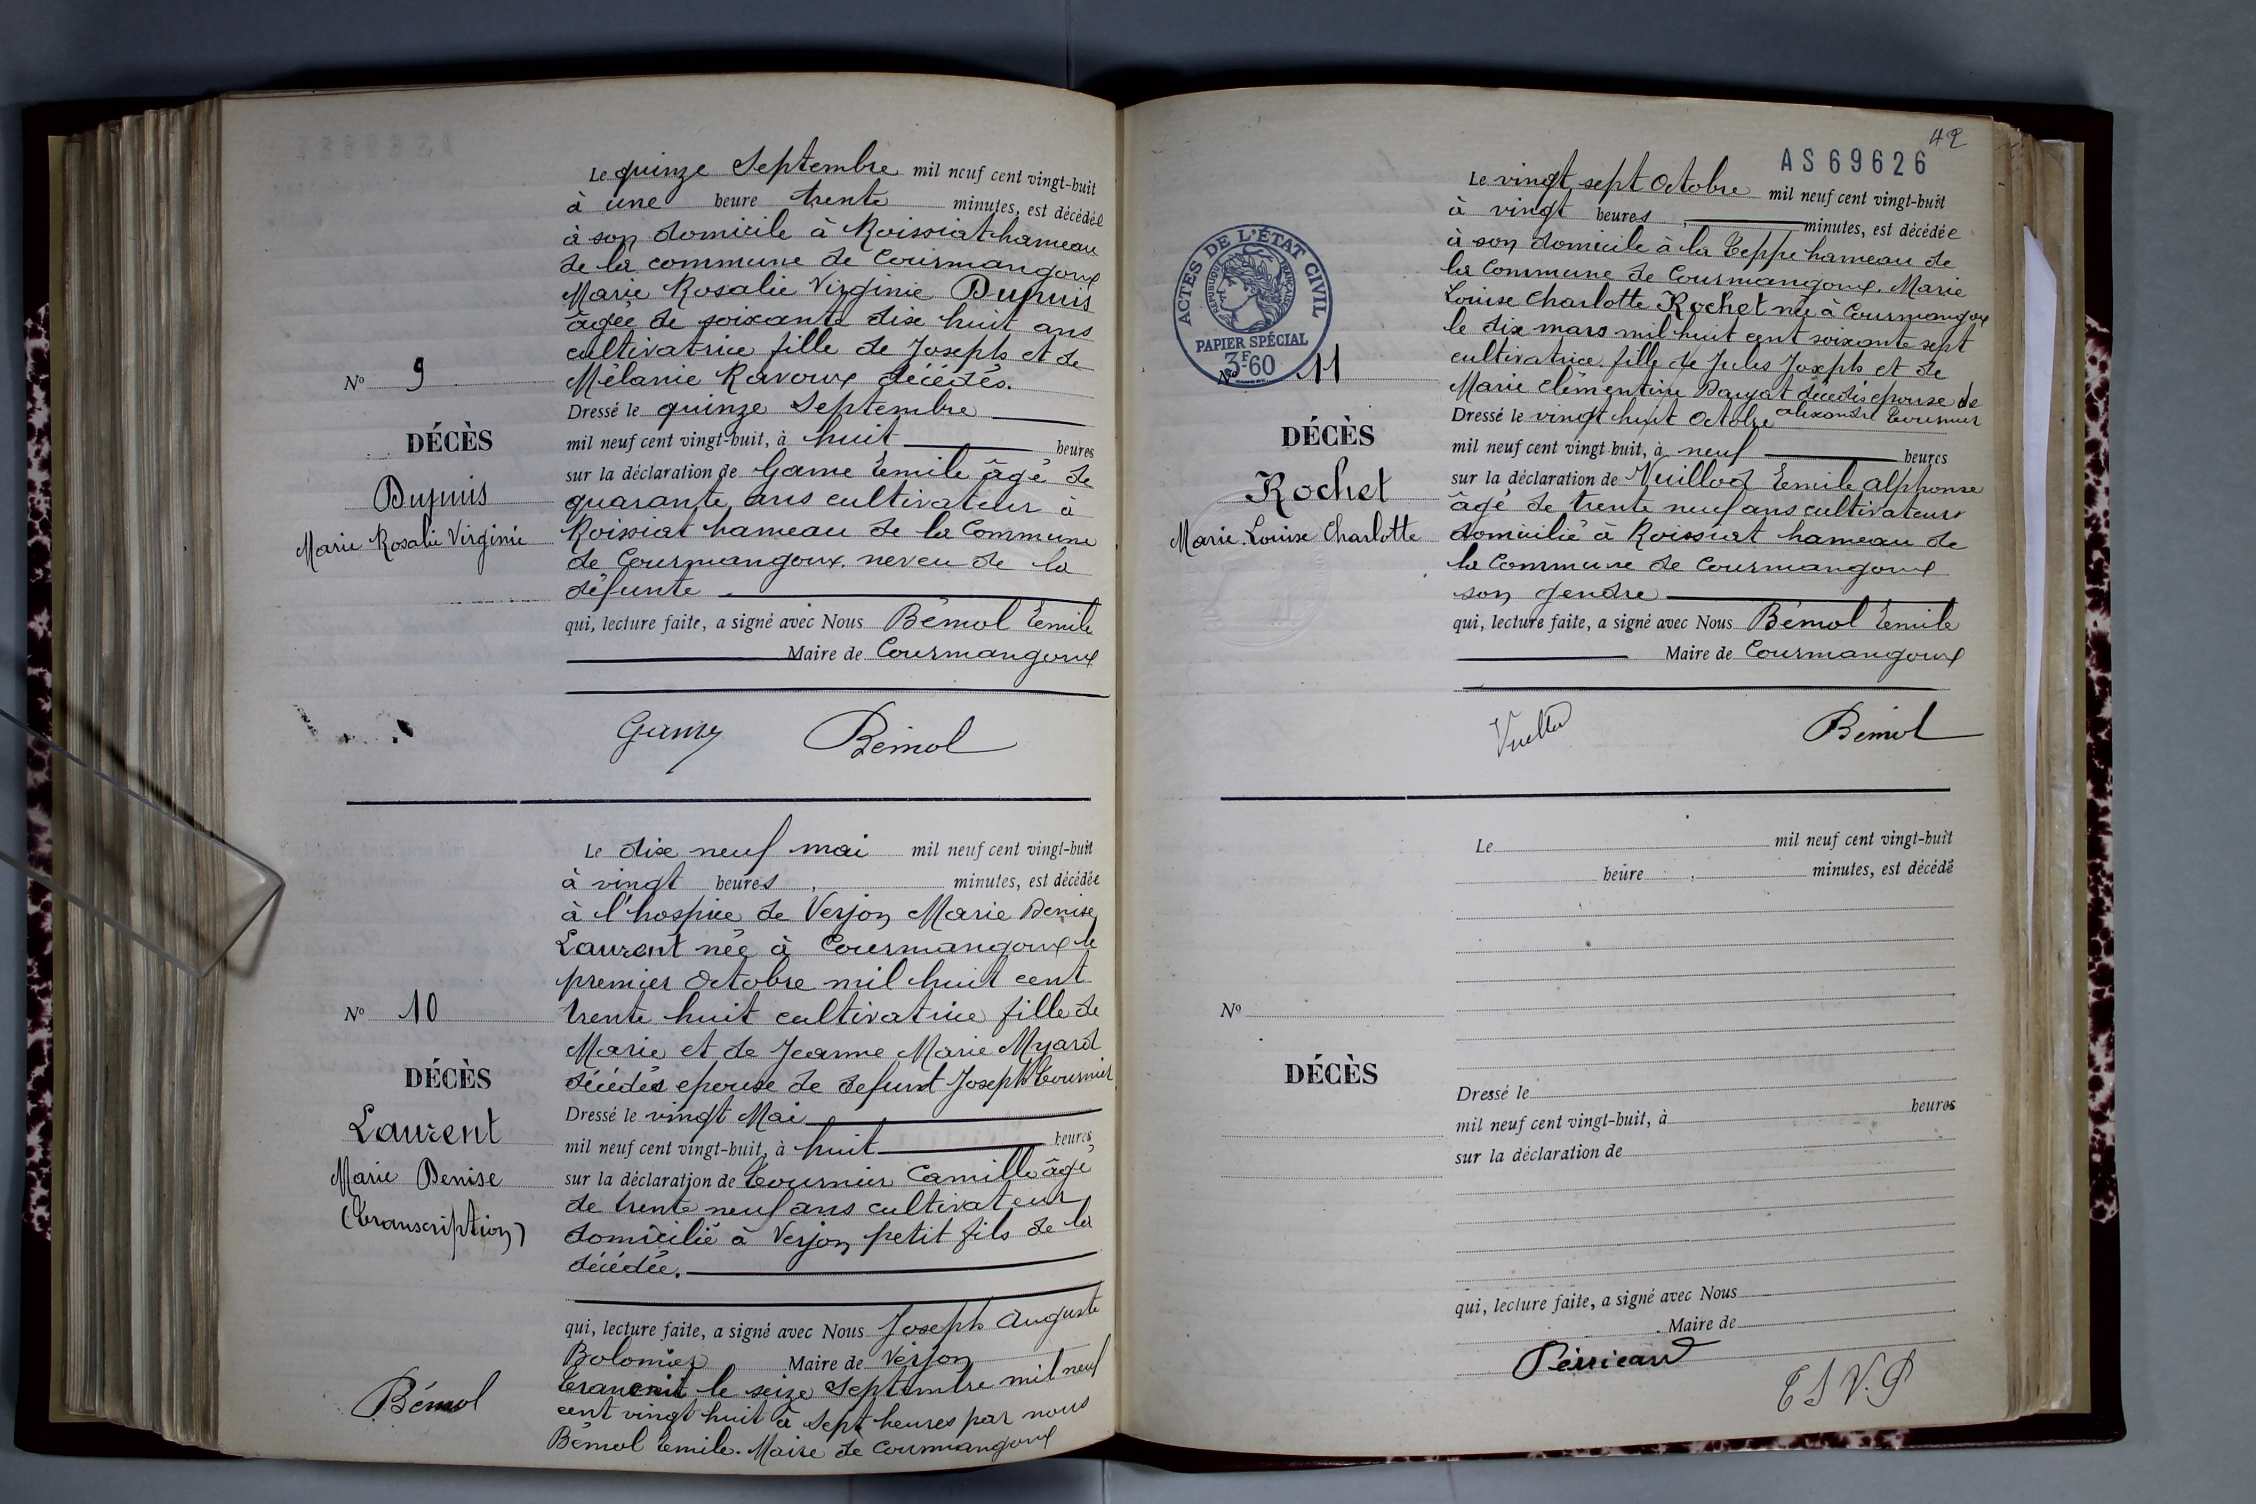 Le quinze Septembre mil neuf cent vingt-huit
à une heure trente minutes, est décédée
à son domicile à Roissiat hameau
de la commune de Courmangoux
Marie Rosalie Virginie Dupuis
âgée de soixante dix huit ans
cultivatrice fille de Joseph et de
Mélanie Ravoux décédés.
Dressé le quinze Septembre
mil neuf cent vingt-huit, à huit heures
sur la déclaration de Game Émile âgé de
quarante ans cultivateur à
Roissiat hameau de la Commune
de Courmangoux neveu de la
défunte
qui, lecture faite, a signé avec Nous Bémol Émile
Maire de Courmangoux
Bémol
Nº 9
DÉCÈS
Dupuis
Marie Rosalie Virginie
Le dix neuf mai mil neuf cent vingt-huit
à vingt heures, minutes, est décédée
à l'hospice de Verjon Marie Denise
Laurent née à Courmangoux le
premier Octobre mil huit cent
trente huit cultivatrice fille de
Marie et de Jeanne Marie Myard
décédés epouse de defunt Joseph Tournier
Dressé le vingt Mai
mil neuf cent vingt-huit, à huit heures
sur la déclaration de Tournier Camille âgé
de trente neuf ans cultivateur
domicilié à Verjon petit fils de la
décédée.
qui, lecture faite, a signé avec Nous Joseph Auguste
Bolomier Maire de Verjon
Transcrit le seize Septembre mil neuf
cent vingt huit à sept heures par nous
Bémol Emile. Maire de Courmangoux
Nº 10
DÉCÈS
Laurent
Marie Denise
(Transcription)
Bémol
42
AS 69626
ACTES DE L'ÉTAT CIVIL
RÉPUBLIQUE FRANÇAISE
PAPIER SPÉCIAL
3F60
Le vingt sept Octobre mil neuf cent vingt-huit
à vingt heures, minutes, est décédée
à son domicile à la Teppe hameau de
la Commune de Courmangoux. Marie
Louise Charlotte Rochet née à Courmangoux
le dix mars mil huit cent soixante sept
cultivatrice fille de Jules Joseph et de
Marie Clémentine décédés epouse de
Alexandre Tournier
Dressé le vingt huit Octobre
mil neuf cent vingt huit, à neuf heures
sur la déclaration de Vuillod Emile Alphonse
âgé de trente neuf ans cultivateur
domicilié à Roissiat hameau de
la Commune de Courmangoux
son gendre
qui, lecture faite, a signé avec Nous Bémol Emile
Maire de Courmangoux
Bémol
Nº 11
DÉCÈS
Rochet
Marie Louise Charlotte
Le mil neuf cent vingt-huit
heure, minutes, est décédé
Nº
DÉCÈS
Dressé le
mil neuf cent vingt-huit, à heures
sur la déclaration de
qui, lecture faite, a signé avec Nous
Maire de
T S V. P